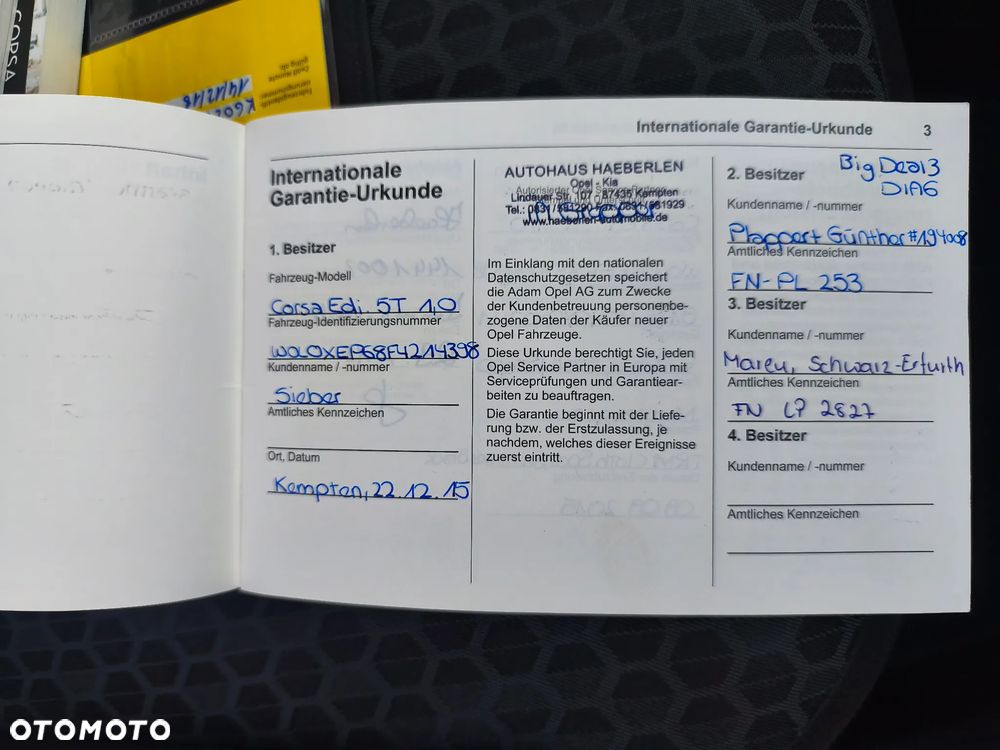 CORSA
Internationale Garantie-Urkunde 3
Internationale
Garantie-Urkunde
1. Besitzer
Fahrzeug-Modell
Corsa Edi. 5T 1,0
Fahrzeug-Identifizierungsnummer
W0L0XEP68F4214398
Kundenname / -nummer
Sieber
Amtliches Kennzeichen
Ort, Datum
Kempten, 22.12.15
AUTOHAUS HAEBERLEN
Opel - Kia
Lindauer Str. 107 - 87435 Kempten
Tel.: 0831/581290 Fax: 0831/581929
www.haeberlen-automobile.de
Im Einklang mit den nationalen
Datenschutzgesetzen speichert
die Adam Opel AG zum Zwecke
der Kundenbetreuung personenbe-
zogene Daten der Käufer neuer
Opel Fahrzeuge.
Diese Urkunde berechtigt Sie, jeden
Opel Service Partner in Europa mit
Serviceprüfungen und Garantiear-
beiten zu beauftragen.
Die Garantie beginnt mit der Liefe-
rung bzw. der Erstzulassung, je
nachdem, welches dieser Ereignisse
zuerst eintritt.
Big Deal 3
DIAG
2. Besitzer
Kundenname / -nummer
Plappert Günther #194008
Amtliches Kennzeichen
FN-PL 253
3. Besitzer
Kundenname / -nummer
Maren, Schwarz-Erfurth
Amtliches Kennzeichen
FN LP 2827
4. Besitzer
Kundenname / -nummer
Amtliches Kennzeichen
OTOMOTO